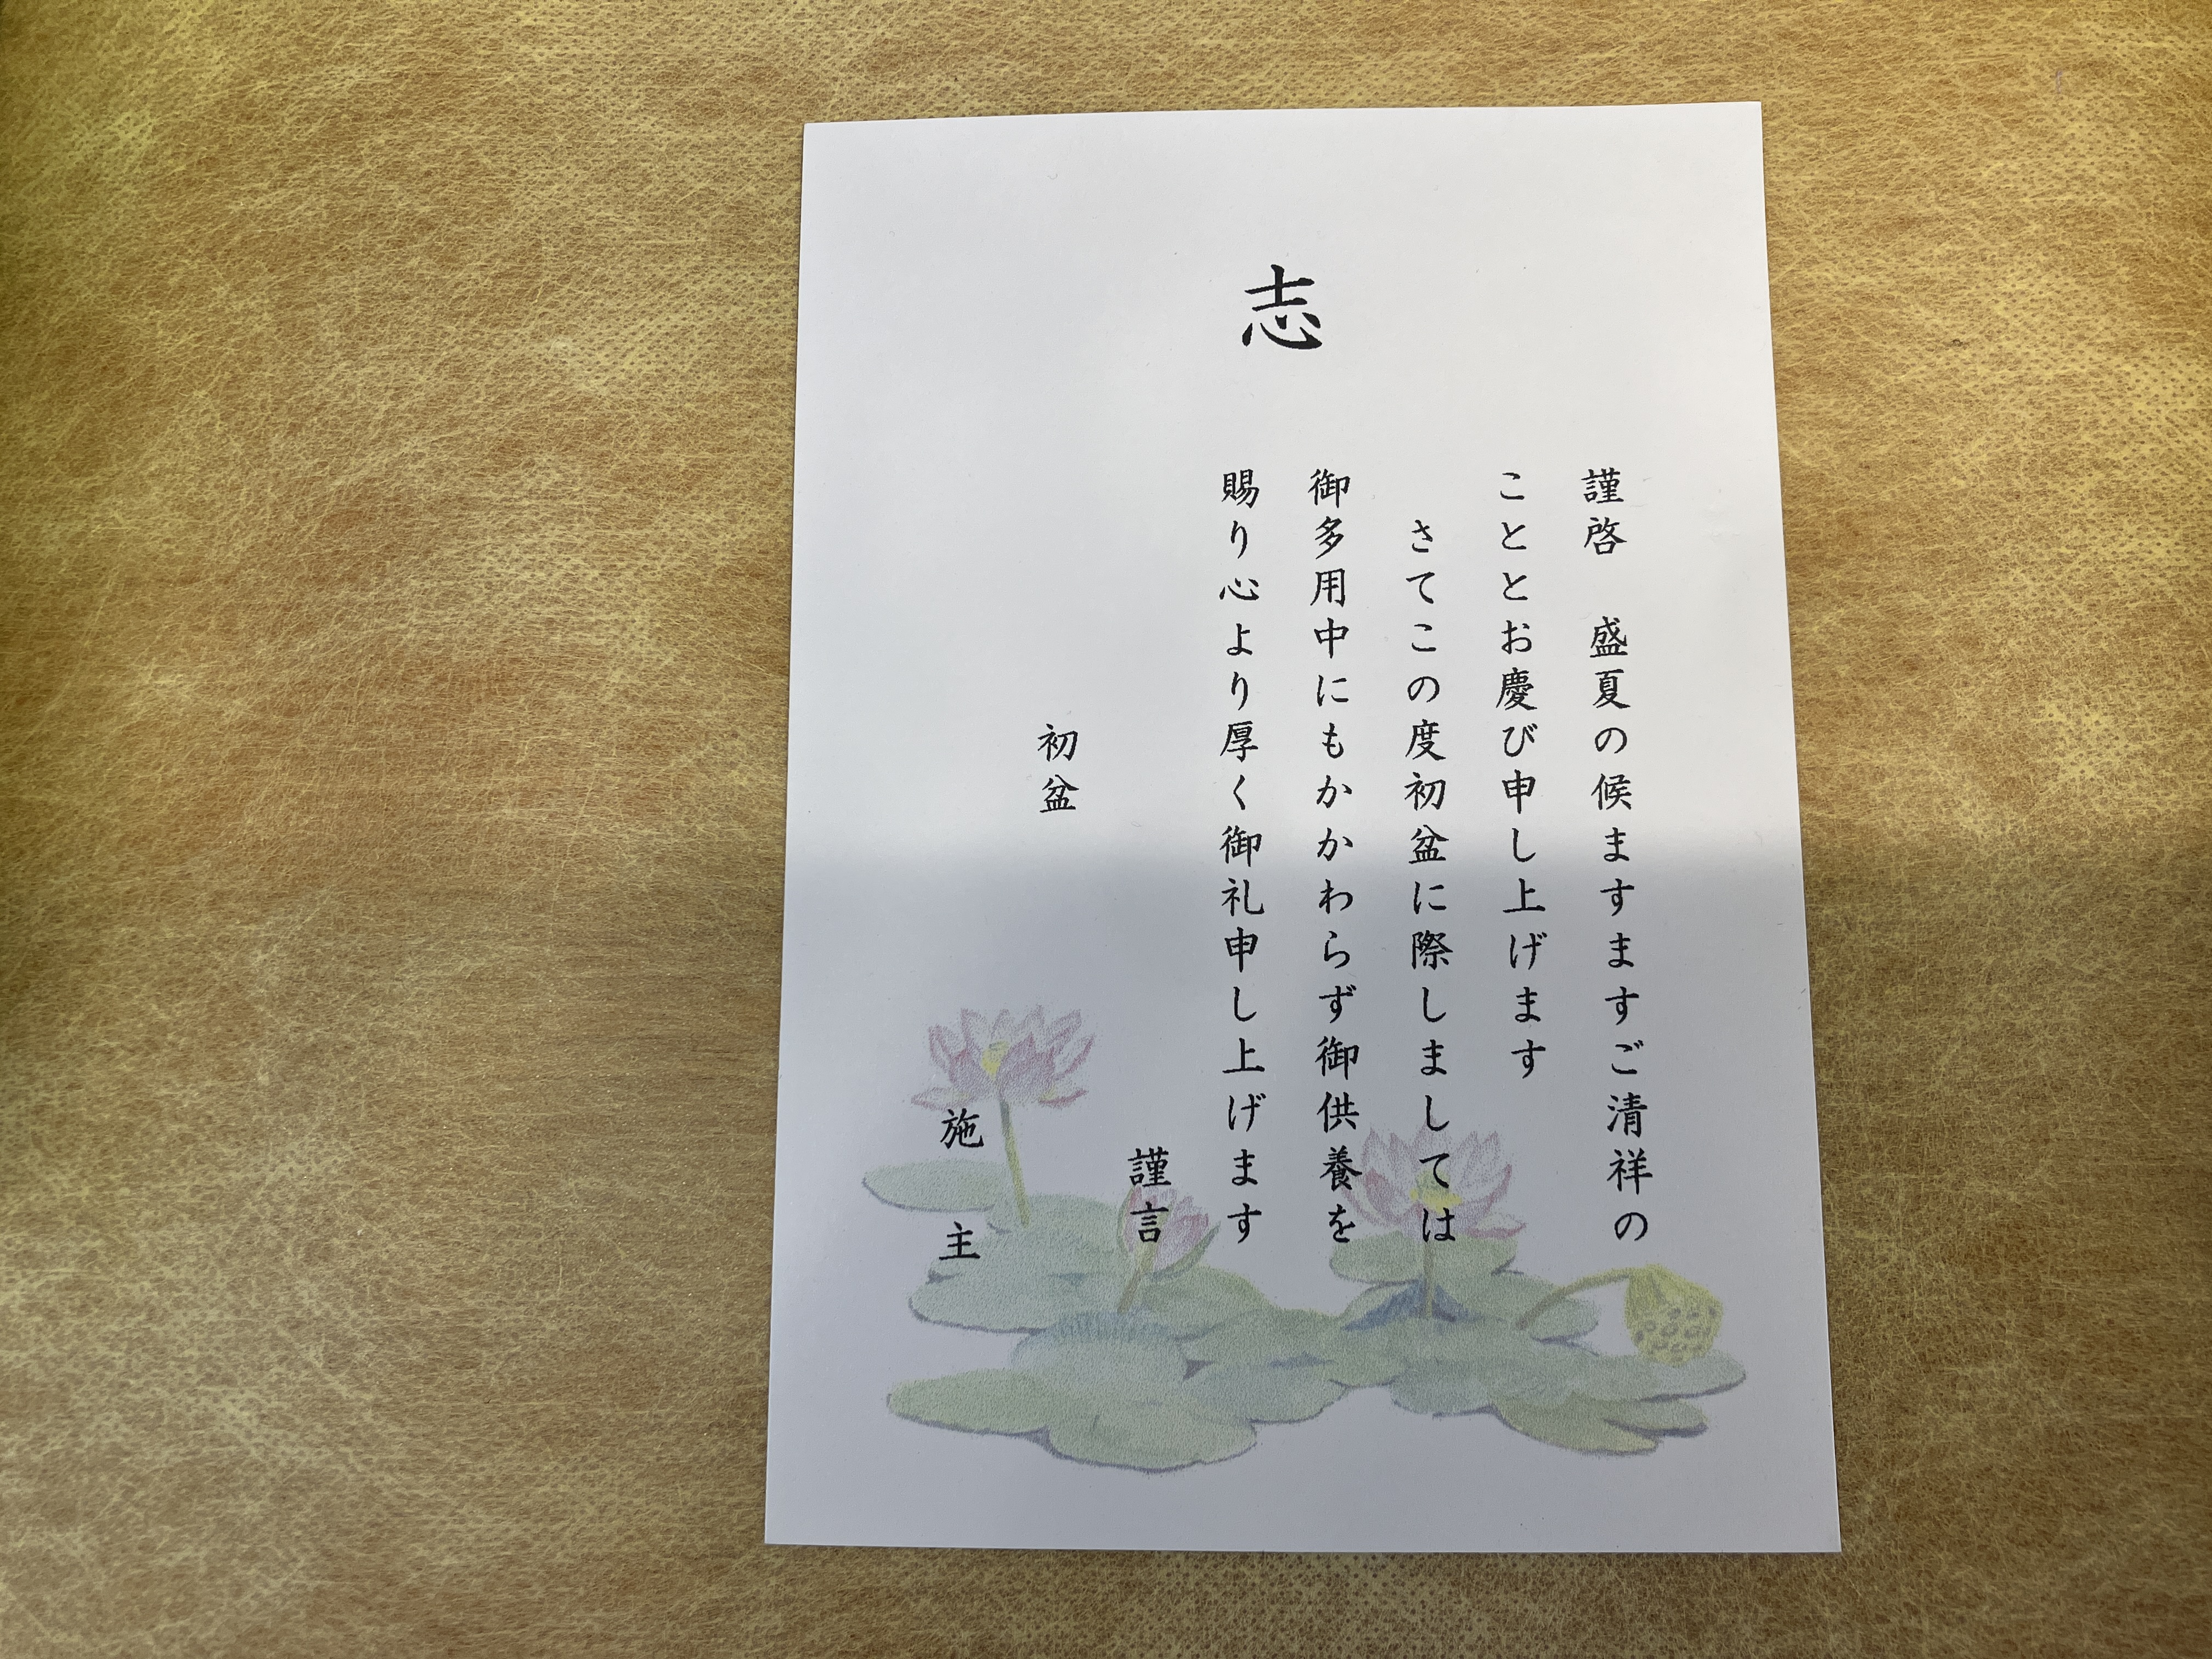 志
謹啓　盛夏の候ますますご清祥の
こととお慶び申し上げます
さてこの度初盆に際しましては
御多用中にもかかわらず御供養を
賜り心より厚く御礼申し上げます
謹言
初盆
施主